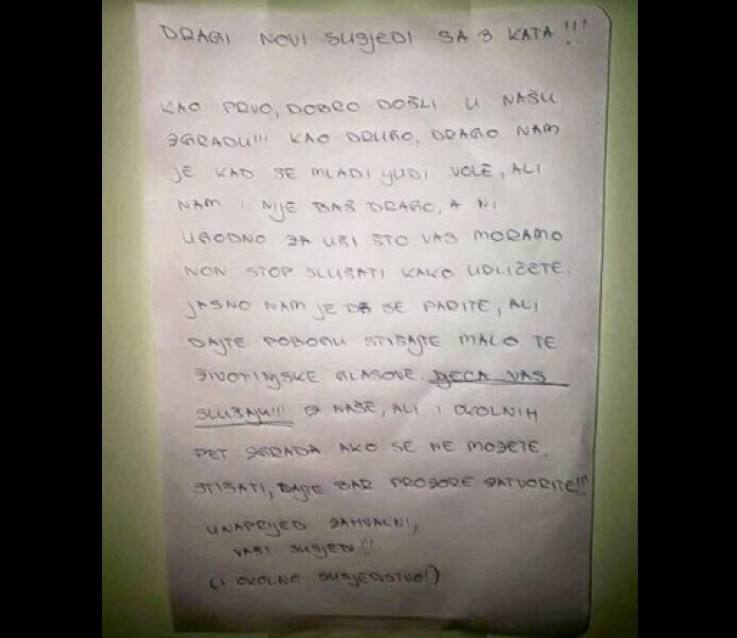 DRAGI NOVI SUSJEDI SA 3 KATA!!!
KAO PRVO, DOBRO DOŠLI U NAŠU
ZGRADU!!! KAO DRUGO, DRAGO NAM
JE KAD SE MLADI LJUDI VOLE, ALI
NAM I NIJE BAŠ DRAGO, A NI
UGODNO ZA UŠI ŠTO VAS MORAMO
NON STOP SLUŠATI KAKO UDLIČETE.
JASNO NAM JE DA SE PARITE, ALI
DAJTE POBOGU STIŠAJTE MALO TE
ŽIVOTINJSKE GLASOVE. DJECA VAS
SLUŠAJU!!! O NAŠE, ALI I OKOLNIH
PET ZGRADA AKO SE NE MOŽETE
STIŠATI, DAJTE BAR PROZORE ZATVORITE!!!
UNAPRIJED ZAHVALNI,
VAŠI SUSJEDI!!!
(I OKOLNO SUSJEDSTVO!)